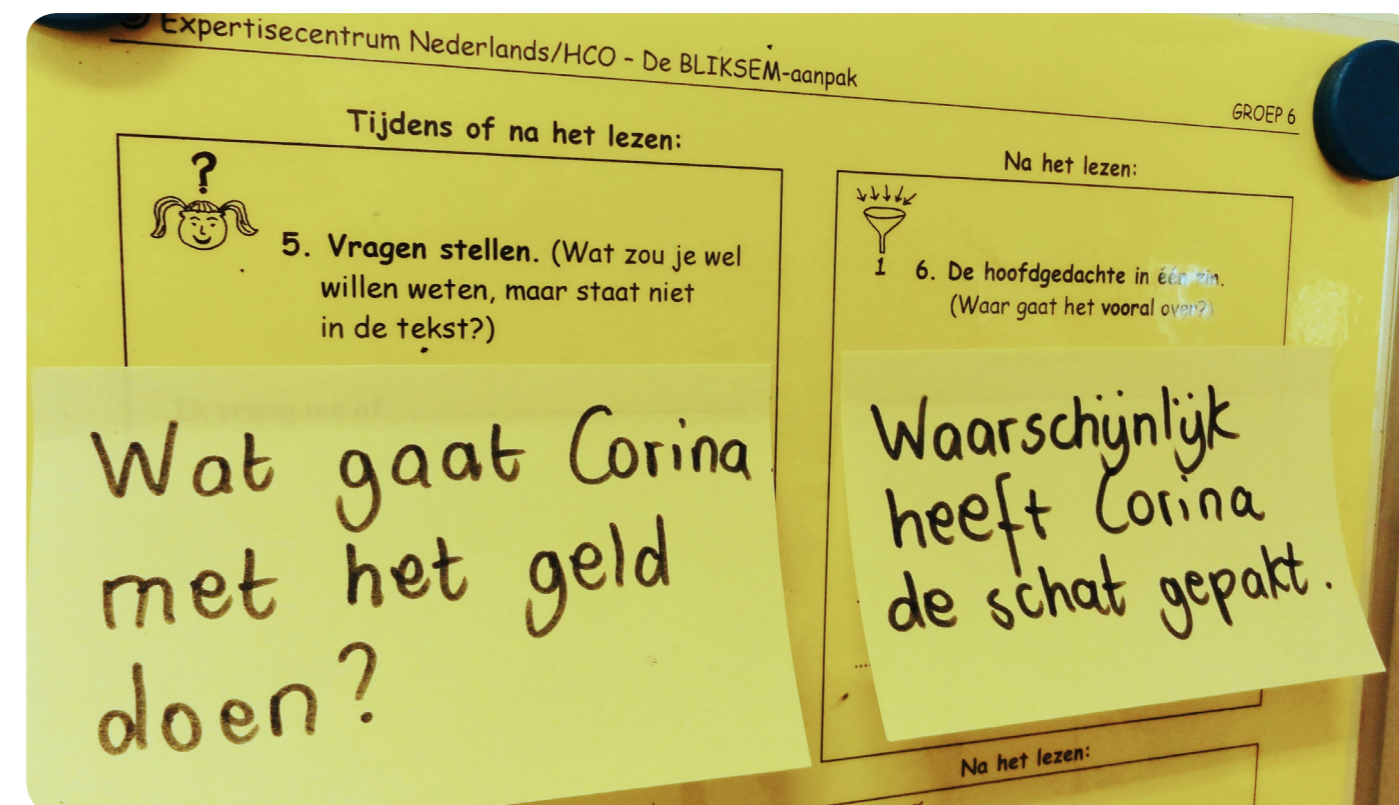 Expertisecentrum Nederlands/HCO - De BLIKSEM-aanpak
GROEP 6
Tijdens of na het lezen:
?
5. Vragen stellen. (Wat zou je wel
willen weten, maar staat niet
in de tekst?)
Ik vraag me af
Wat gaat Corina
met het geld
doen?
Na het lezen:
1
6. De hoofdgedachte in één zin.
(Waar gaat het vooral over?)
Waarschijnlijk
heeft Corina
de schat gepakt.
Na het lezen: